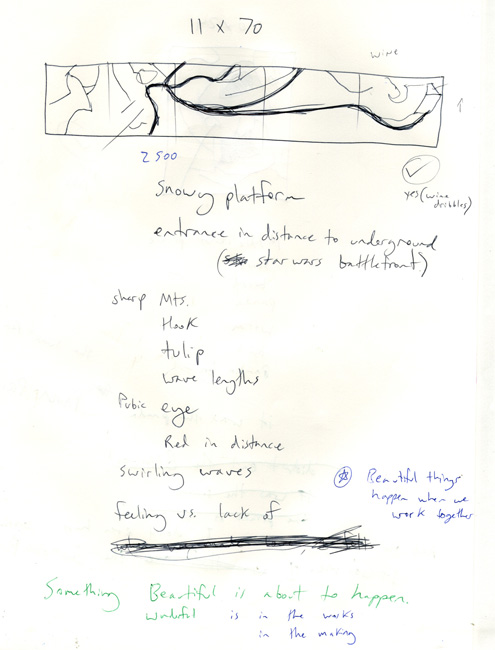 11 x 70
wine
2500
yes (wine
dribbles)
Snowy platform
entrance in distance to underground
(star wars battlefront)
sharp Mts.
Hook
tulip
wave lengths
Pubic eye
Red in distance
swirling waves
Beautiful things
happen when we
work together
feeling vs. lack of
Something Beautiful is about to happen.
wonderful is in the works
in the making